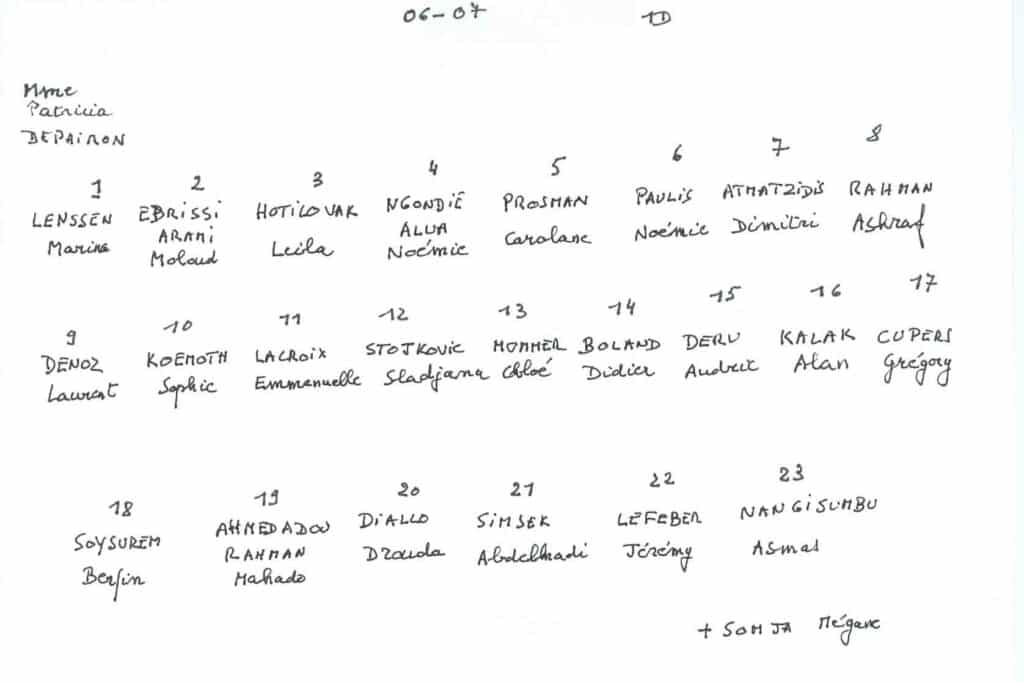 06-07 1D
Mme
Patricia
DEPAIRON
1 2 3 4 5 6 7 8
LENSSEN EBRISSI HOTILOVAK NGONDIÉ PROSMAN PAULIS ATMATZIDIS RAHMAN
Marine ARAMI Leila ALUA Carolane Noémie Dimitri Ashraf
Moloud Noémie
9 10 11 12 13 14 15 16 17
DENOZ KOEMOTH LACROIX STOJKOVIC MOMMER BOLAND DERU KALAK CUPERS
Laurent Sophie Emmanuelle Sladjana Chloé Didier Audric Alan Grégory
18 19 20 21 22 23
SOYSUREM AHMEDADOU DIALLO SIMSEK LEFEBER NANGISUMBU
Berfin RAHMAN Abdelhadi Jérémy Asmal
Mahado
+ SOMJA Mégane